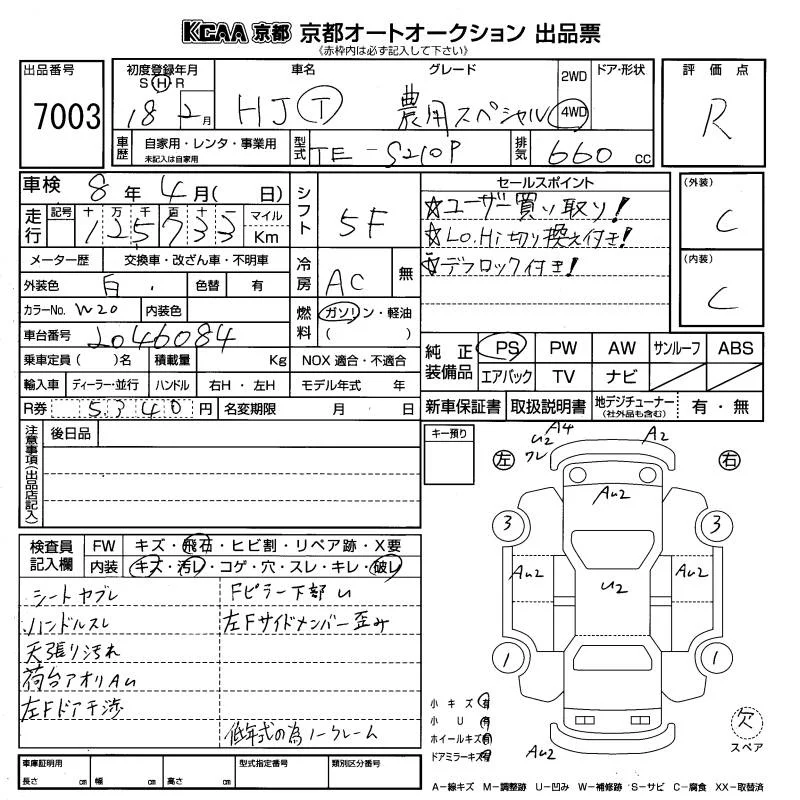 KCAA 京都 京都オートオークション 出品票
《赤枠内は必ず記入して下さい》
出品番号
7003
初度登録年月
S H R
18 2月
車名
グレード
HJT 農用スペシャル
2WD
4WD
ドア・形状
評価点
R
車歴
自家用・レンタ・事業用
未記入は自家用
型式
TE-S210P
排気
660 CC
車検
8年4月(日)
走行
記号 十 万 千 百 十 一
125733
マイル
Km
メーター歴
交換車・改ざん車・不明車
外装色
白
色替
有
カラーNo.
W20
内装色
車台番号
2046084
乗車定員( )名
積載量
Kg
輸入車
ディーラー・並行
ハンドル
右H・左H
R券
5340円
名変期限
月 日
シフト
5F
冷房
AC
無
燃料
ガソリン・軽油
( )
NOX 適合・不適合
モデル年式 年
セールスポイント
☆ユーザー買い取り!
☆Lo.Hi切り換え付き!
☆デフロック付き!
(外装)
C
(内装)
C
純正装備品
PS PW AW サンルーフ ABS
エアバック TV ナビ
新車保証書
取扱説明書
地デジチューナー
(社外品も含む)
有・無
注意事項(出品店記入)
後日品
キー預り
検査員記入欄
FW
キズ・飛石・ヒビ割・リペア跡・X要
内装
キズ・汚レ・コゲ・穴・スレ・キレ・破レ
シートヤブレ
Fピラー下部U
ハンドルスレ
左Fサイドメンバー歪み
天張り汚れ
荷台アオリAU
左Fドア干渉
低年式の為ノークレーム
車庫証明用
長さ cm
幅 cm
高さ cm
型式指定番号
類別区分番号
左
右
A4
U2
ワレ
A2
AU2
3
3
AU2
U2
AU2
1
1
AU2
小キズ 有
小U 有
ホイールキズ 有
ドアミラーキズ 有
欠
スペア
A-線キズ M-調整跡 U-凹み W-補修跡 S-サビ C-腐食 XX-取替済